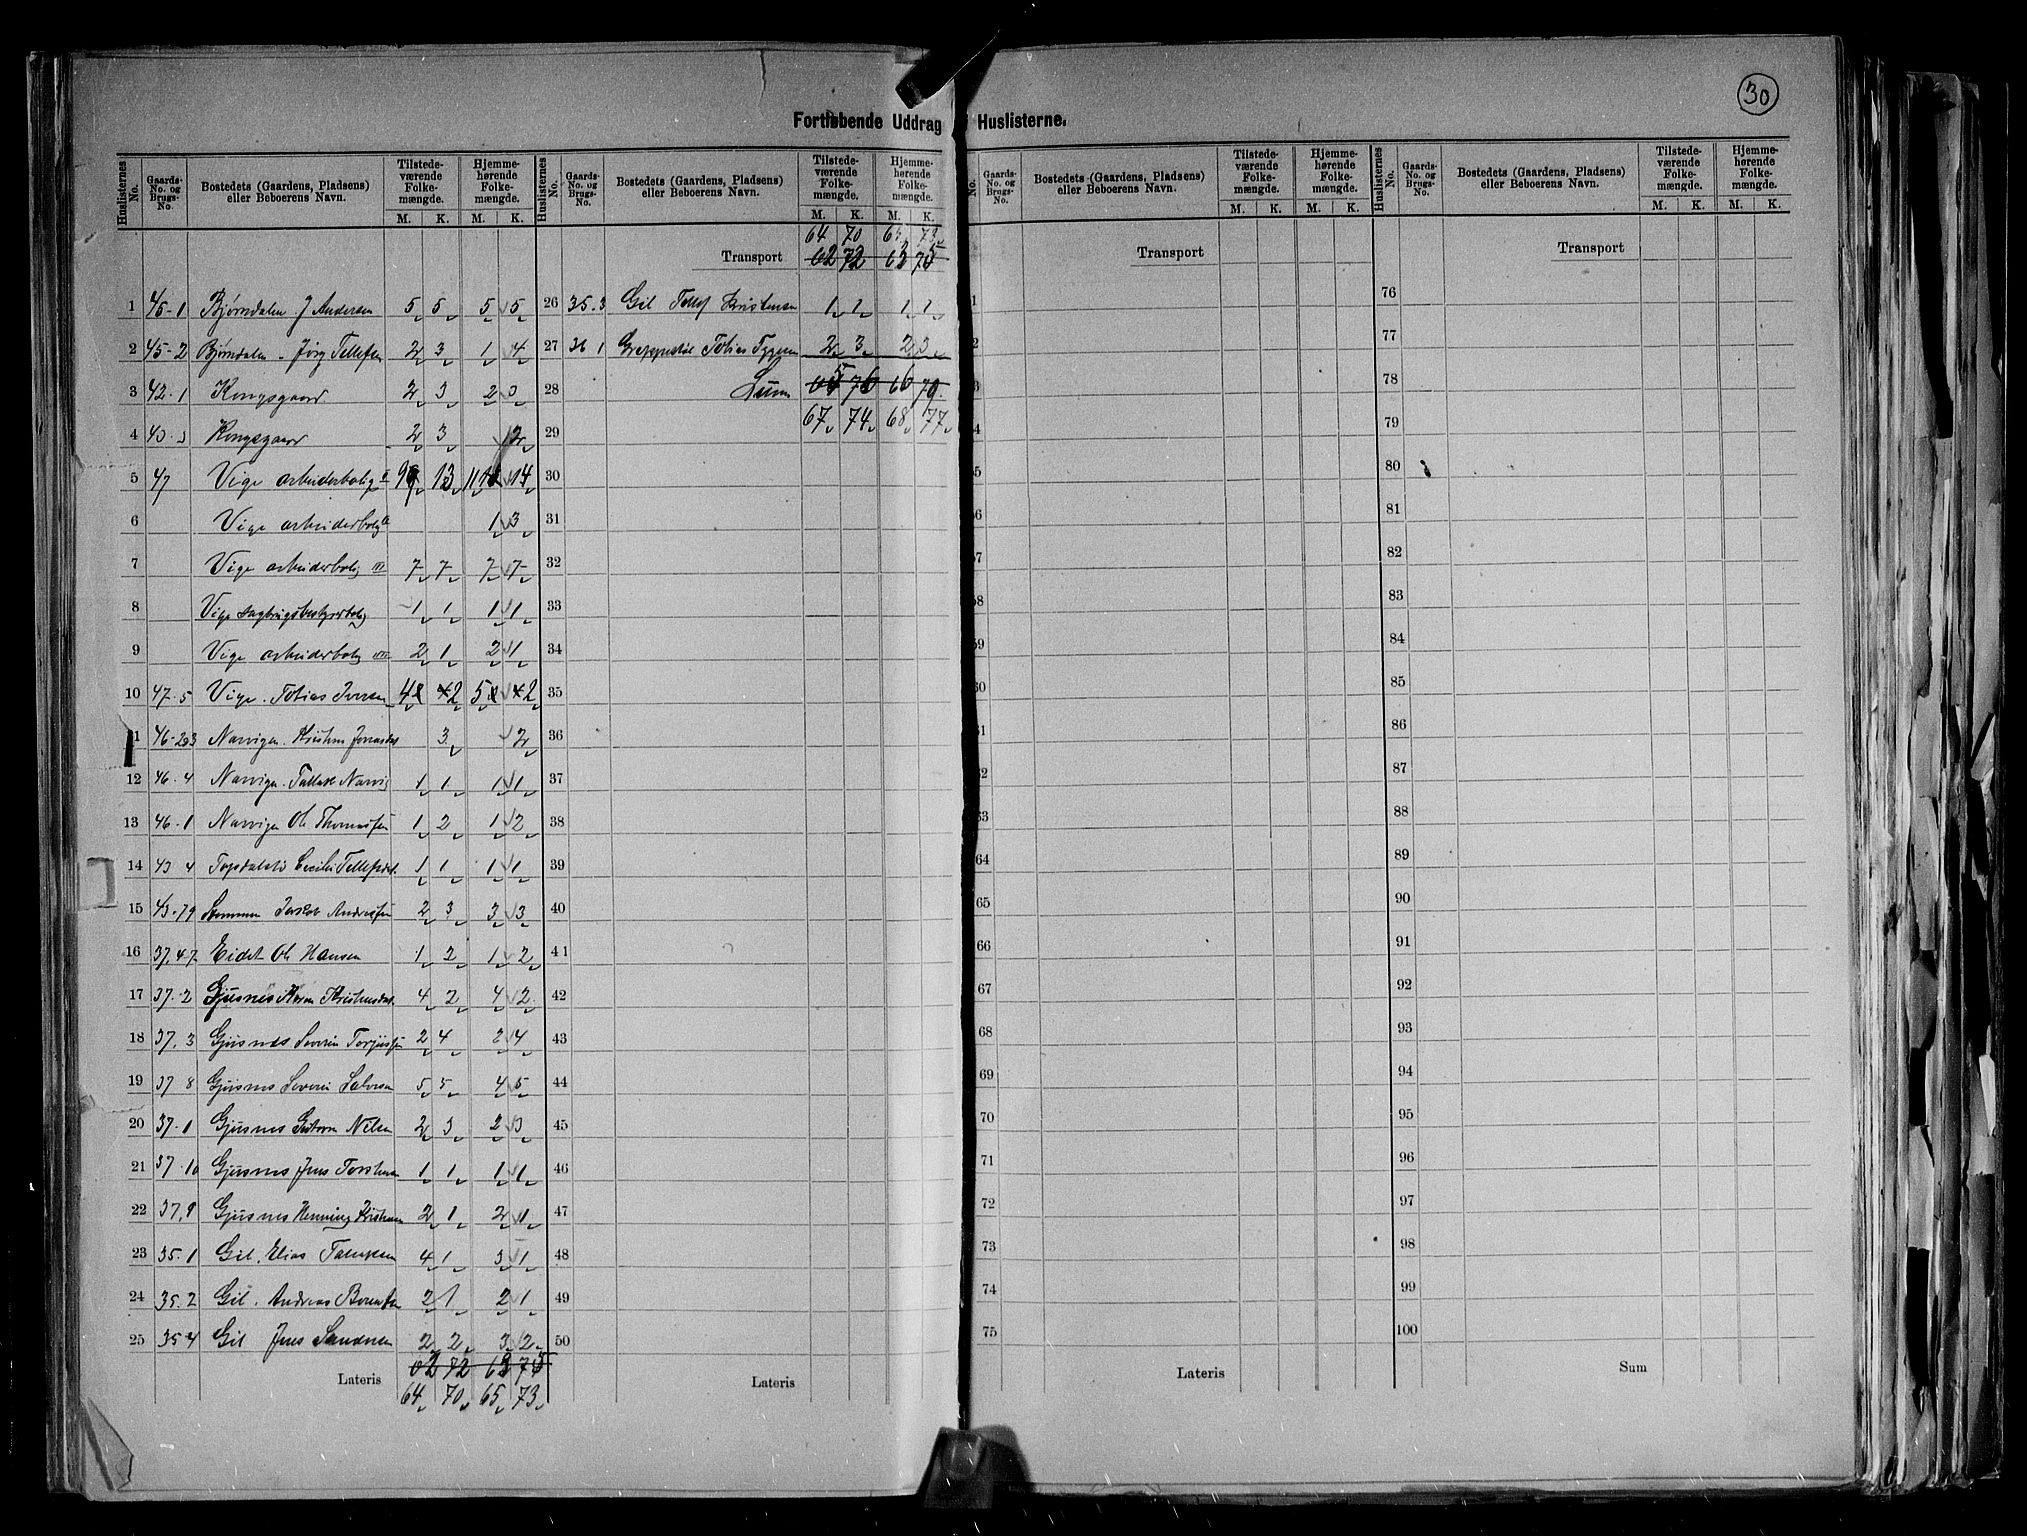 30
Fortløbende Uddrag Huslisterne.
Huslisternes No. Gaards-No. og Brugs-No. Bostedets (Gaardens, Pladsens) eller Beboerens Navn. Tilstedeværende Folkemængde. M. K. Hjemmehørende Folkemængde. M. K.
1 45-1 Bjørndalen J Andersen 5 5 5 5
2 45-2 Bjørndalen Jørg Tellefsen 2 3 1 4
3 42-1 Kongsgaard 2 3 2 3
4 Kongsgaard 2 3 2
5 47 Vige arbeiderbolig 9 13 11 14
6 Vige arbeiderbolig 1 3
7 Vige arbeiderbolig III 7 7 7 7
8 Vige Sagbrugsbestyrerbolig 1 1 1 1
9 Vige arbeiderbolig 2 1 2 1
10 47-5 Vige Tobias Iversen 4 2 5 2
11 46-2 3 Narvigen 3 2
12 46-4 Narvigen 1 1 1 1
13 46-1 Narvigen Ole Thomassen 1 2 1 2
14 43 4 Topdalslid Cecilie Tellefsdat. 1 1 1 1
15 43-79 Jakob Andreassen 2 3 3 3
16 37,47 Eidet Ole Hansen 1 2 1 2
17 37-2 Gjusnes Karen 4 2 4 2
18 37,3 Gjusnes Severin Torjussen 2 4 2 4
19 37 8 Gjusnes Severin Salvesen 5 5 4 5
20 37-1 Gjusnes Nilsen 2 3 2 3
21 37-10 Gjusnes Jens 1 1 1 1
22 37,9 Gjusnes Henning 2 1 2 1
23 35-1 Gil. Elias 4 1 3 1
24 35-2 Gil. Andreas Berentsen 2 1 2 1
25 35-4 Gil Jens 2 2 3 2
62 72 63 75
Lateris 64 70 65 73
Huslisternes No. Gaards-No. og Brugs-No. Bostedets (Gaardens, Pladsens) eller Beboerens Navn. Tilstedeværende Folkemængde. M. K. Hjemmehørende Folkemængde. M. K.
64 70 65 73
Transport 62 72 63 75
26 35-3 Gil Tellef Kristensen 1 1 1 1
27 36 1 Tobias 2 3 2 3
28 Sum 65 76 66 79
29 67 74 68 77
30
31
32
33
34
35
36
37
38
39
40
41
42
43
44
45
46
47
48
49
50
Lateris
No. Gaards-No. og Brugs-No. Bostedets (Gaardens, Pladsens) eller Beboerens Navn. Tilstedeværende Folkemængde. M. K. Hjemmehørende Folkemængde. M. K.
Transport
64
65
66
67
68
69
70
71
72
73
74
75
Lateris
Huslisternes No. Gaards-No. og Brugs-No. Bostedets (Gaardens, Pladsens) eller Beboerens Navn. Tilstedeværende Folkemængde. M. K. Hjemmehørende Folkemængde. M. K.
Transport
76
77
78
79
80
81
82
83
84
85
86
87
88
89
90
91
92
93
94
95
96
97
98
99
100
Sum